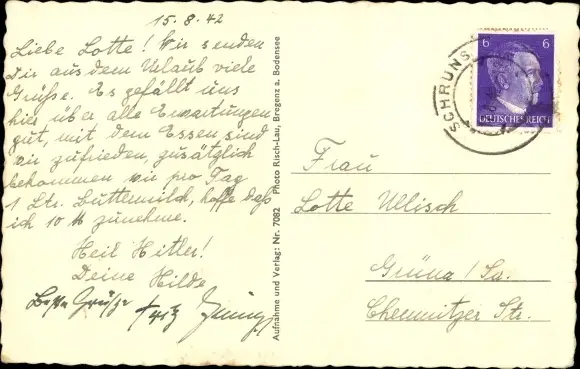 15.8.42
Liebe Lotte! Wir senden
Dir aus dem Urlaub viele
Grüße. Es gefällt uns
hier über alle Erwartungen
gut, mit dem Essen sind
wir zufrieden, zusätzlich
bekommen wir pro Tag
1 Ltr. Buttermilch, hoffe daß
ich 10 ℔ zunehme.
Heil Hitler!
Deine Hilde
Beste Grüße Fritz
Aufnahme und Verlag: Nr. 7082 Photo Risch-Lau, Bregenz a. Bodensee
6 6
DEUTSCHES REICH
SCHRUNS
Frau
Lotte Ullisch
Grüna / Sa.
Chemnitzer Str.